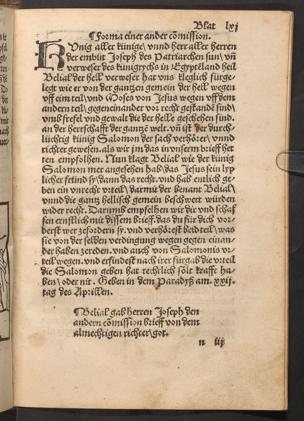 Blat lxj
¶Forma einer ander cõmission.
KUnig aller künige/ vnnd herr aller herren
der embüt Joseph des Patriarchen sun/ vñ
verweser des künigrychs in Egyptland heil
Belial der hell verweser hat vns kleglich fürge-
legt wie er von der gantzen gemein der hell wegen
vff ein teil/ vnd Moses von Jesus wegen vff dem
andern teil/ gegeneinander vor recht gestand sind/
vmb frefel vnd gewalt die der helle geschehen sind.
an der herrschafft der gantzẽ welt. vñ ist der durch-
lüchtig künig Salomon der sach verhörer/ vnnd
richter gewesen/ als wir jm das in vnserm brieff het
ten empfolhen. Nun klagt Belial wie der künig
Salomon mer angesehen hab/ das Jesus sin lyp
licher fründ sy/ dann das recht. vnd hab entlich ge-
ben ein vnrecht vrteil/ darmit der benant Belial/
vnnd die gantz hellisch gemein beschwert würden
wider recht. Darumb empfelhen wir dir vnd schaf
fen ernstlich mit dissem brieff/ das du für dich vor-
derst wer zefordern sy. vnd verhörest beid teil/ was
sie von der selben verdingung wegen gegen einan-
der haben zereden. vnd auch von Salomonis vr-
teil wegen. vnd erfindest nach irer fürgab die vrteil
die Salomon geben hat rechtlich sölt krafft ha-
ben/ oder nit. Geben in dem Paradyß am. xxij.
tag des Aprillen.
¶Belial gab herren Joseph den
andern cõmission brieff von dem
almechtigen richter/ got.
n iij